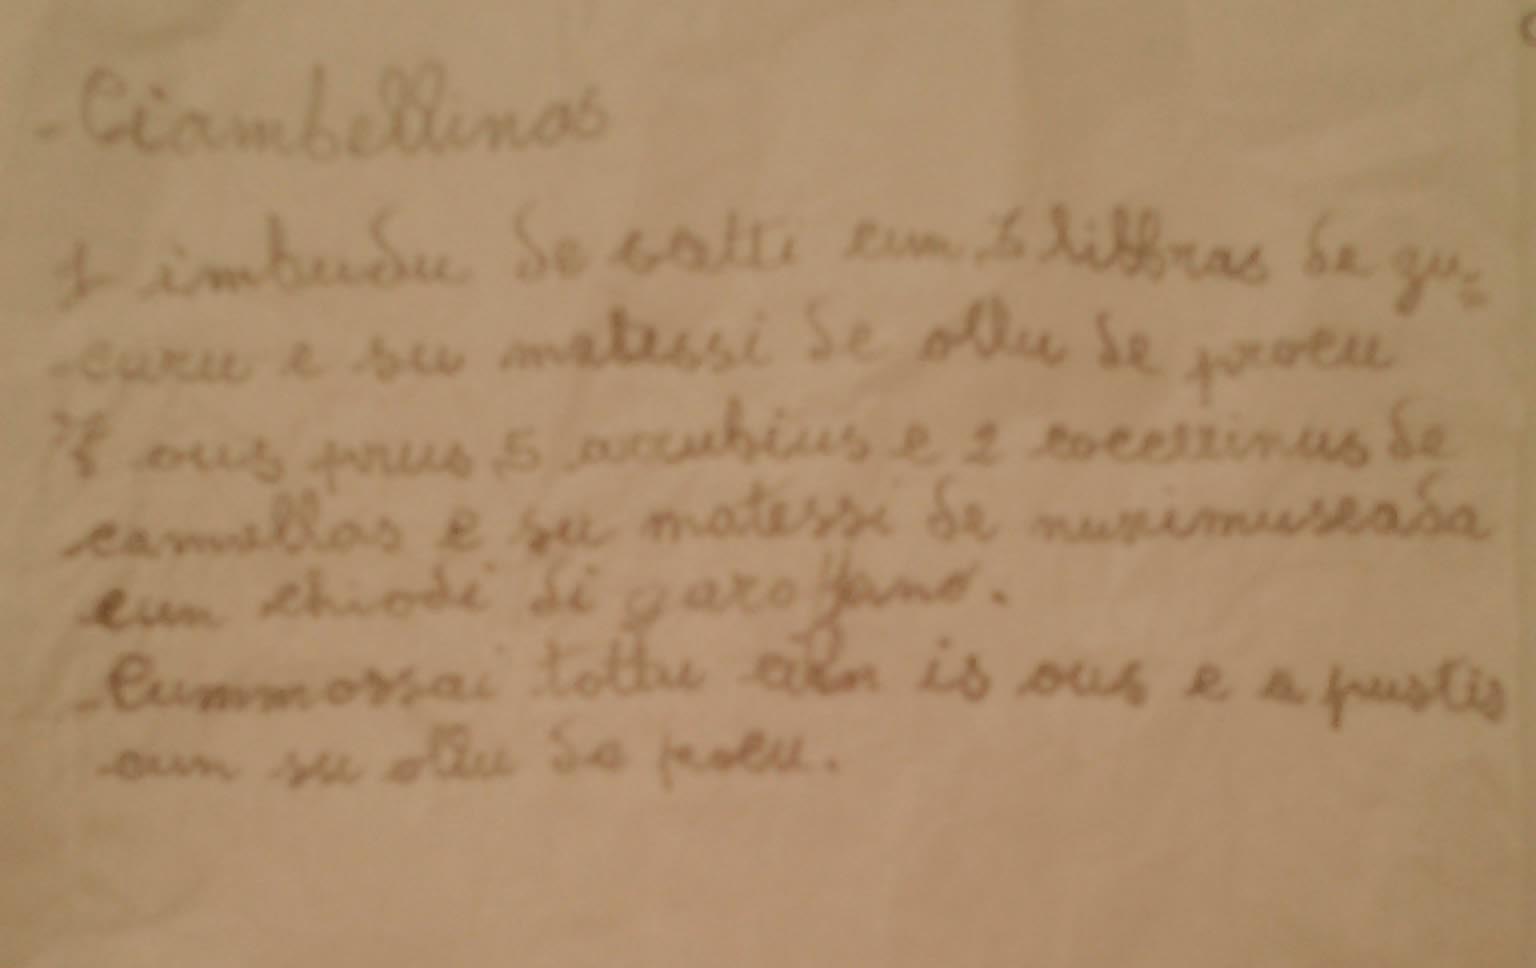 - Ciambellinas
1 imbudu de satti cun 5 libbras de zu=
curu e su matessi de ollu de procu
ous prus 5 arrubius e 2 coccerinus de
cannellas e su matessi de nuximuscada
cun chiodi di garoffano.
- Cummossai tottu cun is ous e a pustis
cun su ollu de procu.